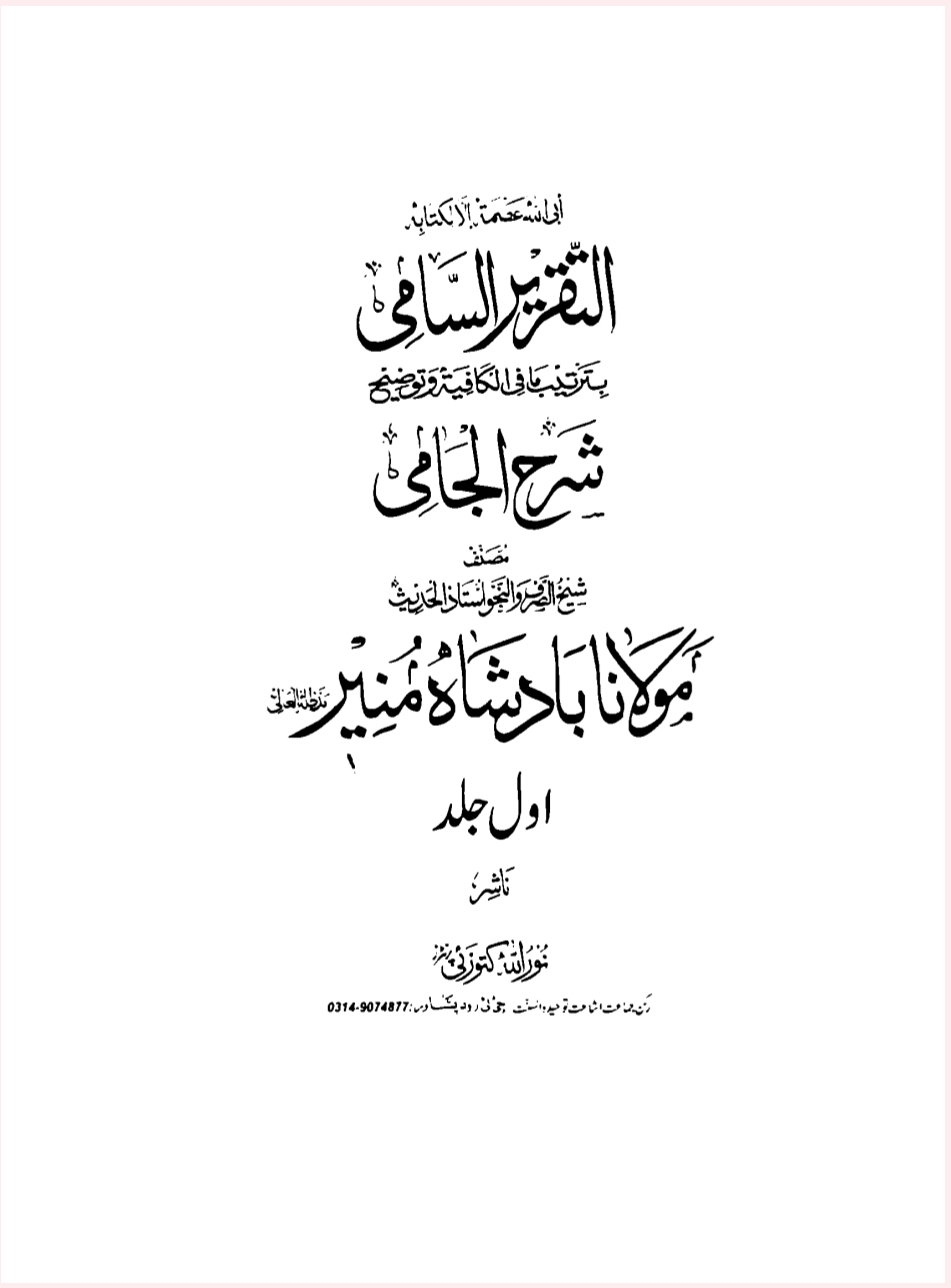 أبى الله عصمة إلا لكتابه
التَّقرِير السَّامِی
بِتَرتيب مَا فِی الكَافِيَة وَتَوضِيح
شَرح الجَامِی
مُصَنِّف
شَيخُ الصَّرف وَالنَّحو اُستَاذُ الحَدِيث
مَولَانا بَادشَاه مُنِير مدظله العالی
اول جلد
نَاشِر
نُورُ اللّٰه كتوزئی
رکن جماعت اشاعت توحید والسنت جی ٹی روڈ پشاور: 0314-9074877